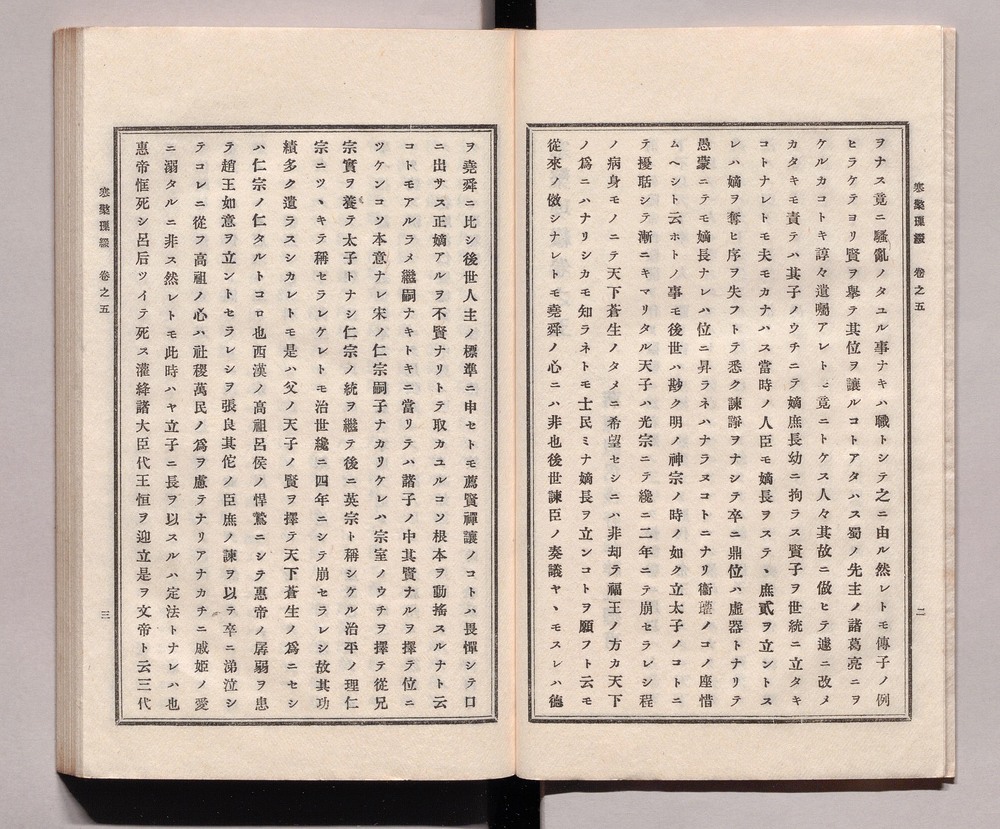 寒檠璅綴 巻之五
二
ヲナス竟ニ騷亂ノタユル事ナキハ職トシテ之ニ由ル然レトモ傳子ノ例
ヒラケテヨリ賢ヲ舉テ其位ヲ讓ルコトアタハス蜀ノ先主ノ諸葛亮ニヲ
ケルカコトキ諄々遺囑アレトモ竟ニトケス人々其故ニ倣ヒテ遽ニ改メ
カタキモ責テハ其子ノウチニテ嫡庶長幼ニ拘ラス賢子ヲ世統ニ立タキ
コトナレトモ夫モカナハス當時ノ人臣モ嫡長ヲステヽ庶貳ヲ立ントス
レハ嫡ヲ奪ヒ序ヲ失フトテ悉ク諫諍ヲナシテ卒ニ鼎位ハ虛器トナリテ
愚蒙ニテモ嫡長ナレハ位ニ昇ラネハナラヌコトニナリ衞瓘ノコノ座惜
ムヘシト云ホトノ事モ後世ハ尠ク明ノ神宗ノ時ノ如ク立太子ノコトニ
テ擾聒シテ漸ニキマリタル天子ハ光宗ニテ纔ニ二年ニテ崩セラレシ程
ノ病身モノニテ天下蒼生ノタメニ希望セシニハ非却テ福王ノ方カ天下
ノ爲ニハナリシカモ知ラネトモ士民ミナ嫡長ヲ立ンコトヲ願フト云モ
從來ノ倣シナレトモ堯舜ノ心ニハ非也後世諫臣ノ奏議ヤヽモスレハ德
ヲ堯舜ニ比シ後世人主ノ標準ニ申セトモ薦賢禪讓ノコトハ畏憚シテ口
ニ出サス正嫡アルヲ不賢ナリトテ取カユルコソ根本ヲ動搖スルナト云
コトモアルラメ繼嗣ナキトキニ當リテハ諸子ノ中其賢ナルヲ擇テ位ニ
ツケンコソ本意ナレ宋ノ仁宗嗣子ナカリケレハ宗室ノウチヲ擇テ從兄
宗實ヲ養テ太子トナシ仁宗ノ統ヲ繼テ後ニ英宗ト稱シケル治平ノ理仁
宗ニツヽキテ稱セラレケレトモ治世纔ニ四年ニシテ崩セラレシ故其功
績多ク遺ラスシカレトモ是ハ父ノ天子ノ賢ヲ擇テ天下蒼生ノ爲ニセシ
ハ仁宗ノ仁タルトコロ也西漢ノ高祖呂侯ノ悍鷙ニシテ惠帝ノ孱弱ヲ患
テ趙王如意ヲ立ントセラレシヲ張良其佗ノ臣庶ノ諫ヲ以テ卒ニ涕泣シ
テコレニ從フ高祖ノ心ハ社稷萬民ノ爲ヲ慮テナリアナカチニ戚姫ノ愛
ニ溺タルニ非ス然レトモ此時ハヤ立子ニ長ヲ以スルハ定法トナレハ也
惠帝恇死シ呂后ツイテ死ス灌絳諸大臣代王恒ヲ迎立是ヲ文帝ト云三代
寒檠璅綴 巻之五
三